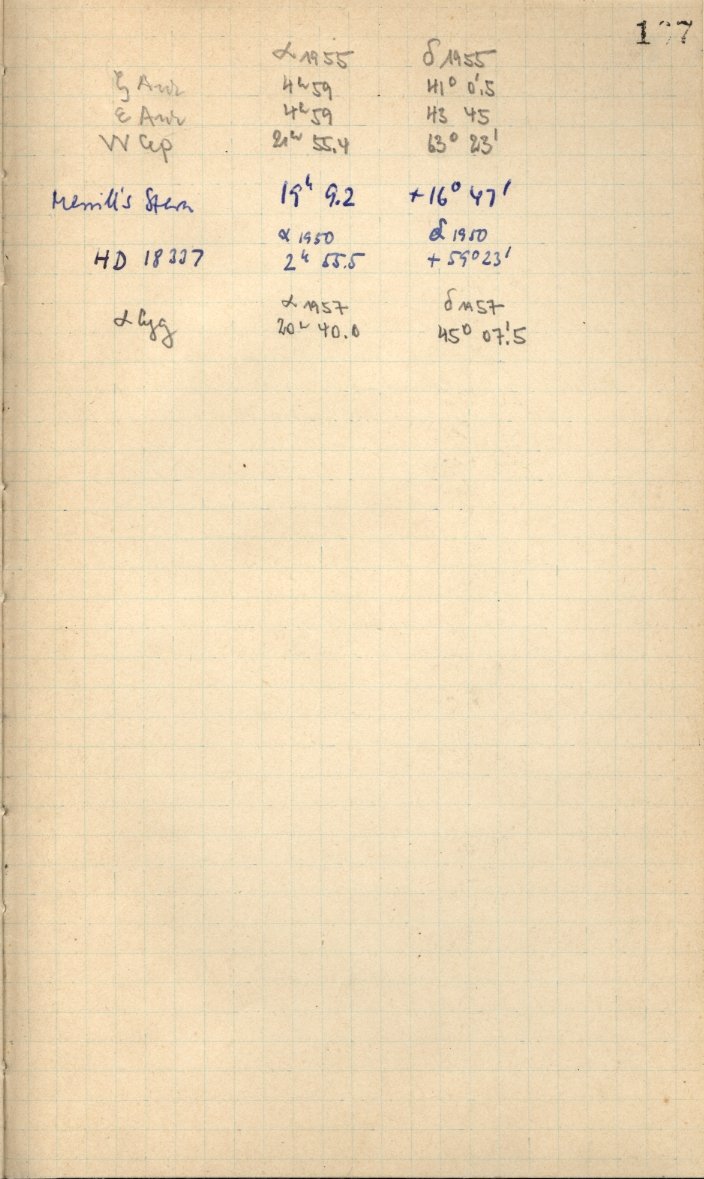 α 1955 δ 1955
ζ Aur 4ʰ 59 41° 0'.5
ε Aur 4ʰ 59 43 45
VV Cep 21ʰ 55.4 63° 23'
Merrill's Stern 19ʰ 9.2 +16° 47'
α 1950 δ 1950
HD 18337 2ʰ 55.5 +59° 23'
α 1957 δ 1957
α Cyg 20ʰ 40.0 45° 07'.5